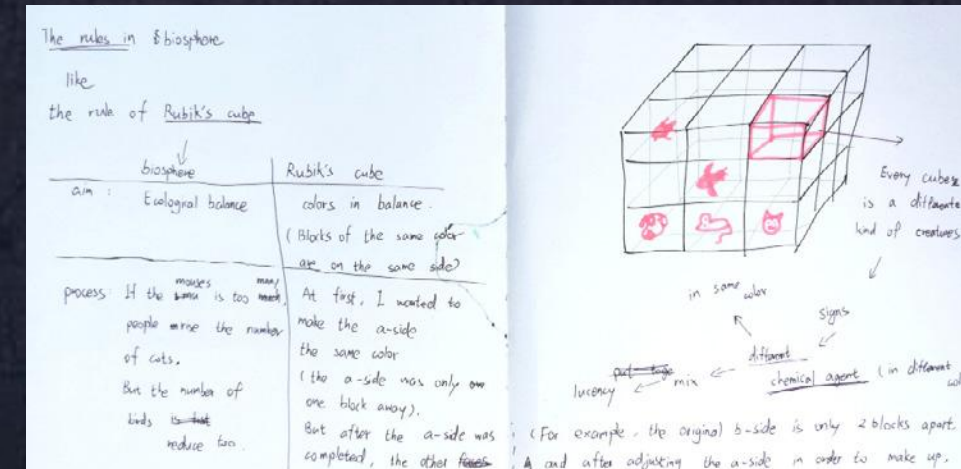 The rules in biosphere
like
the rule of Rubik's cube
biosphere
Rubik's cube
aim :
Ecological balance
colors in balance.
(Blocks of the same color
are on the same side)
process: If the mouses is too many,
people the number
of cats.
But the number of
birds
reduce too.
At first, I wanted to
make the a-side
the same color
(the a-side was only
one block away).
But after the a-side was
completed, the other
Every cubes
is a different
kind of creatures
signs
different
chemical agent (in different
mix
lucency
in same
color
(For example, the original b-side is only 2 blocks apart.
and after adjusting the a-side in order to make up,